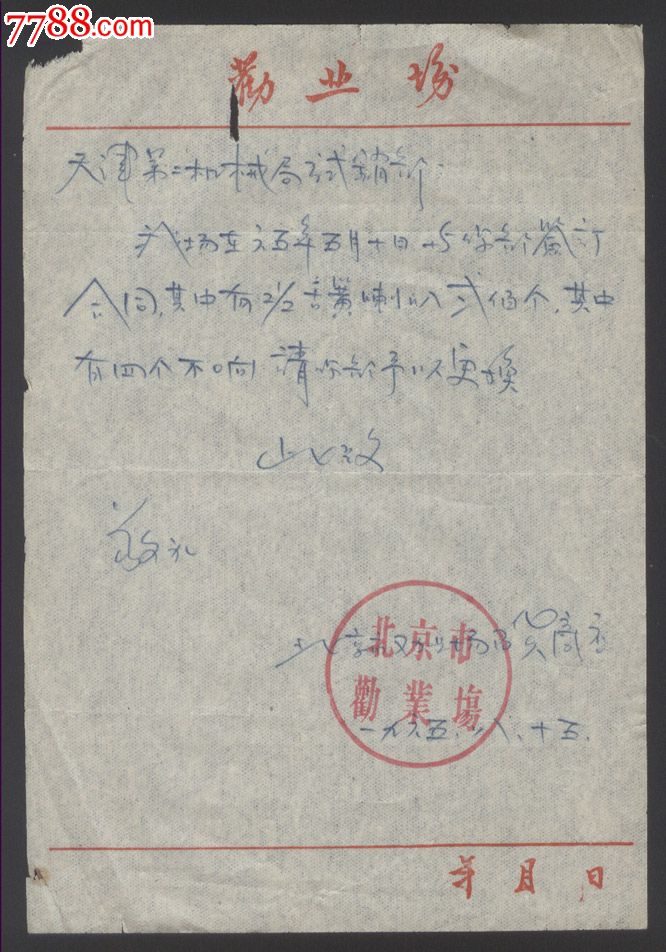 7788.com
劝业场
天津第二机械局试销部:
我场在六五年五月十日与你部签订
合同,其中有2½舌簧喇叭弍佰个,其中
有四个不响 请你部予以更换
此致
敬礼
北京劝业场百货商店
北京市
勸業場
一九六五.八.十五.
年月日